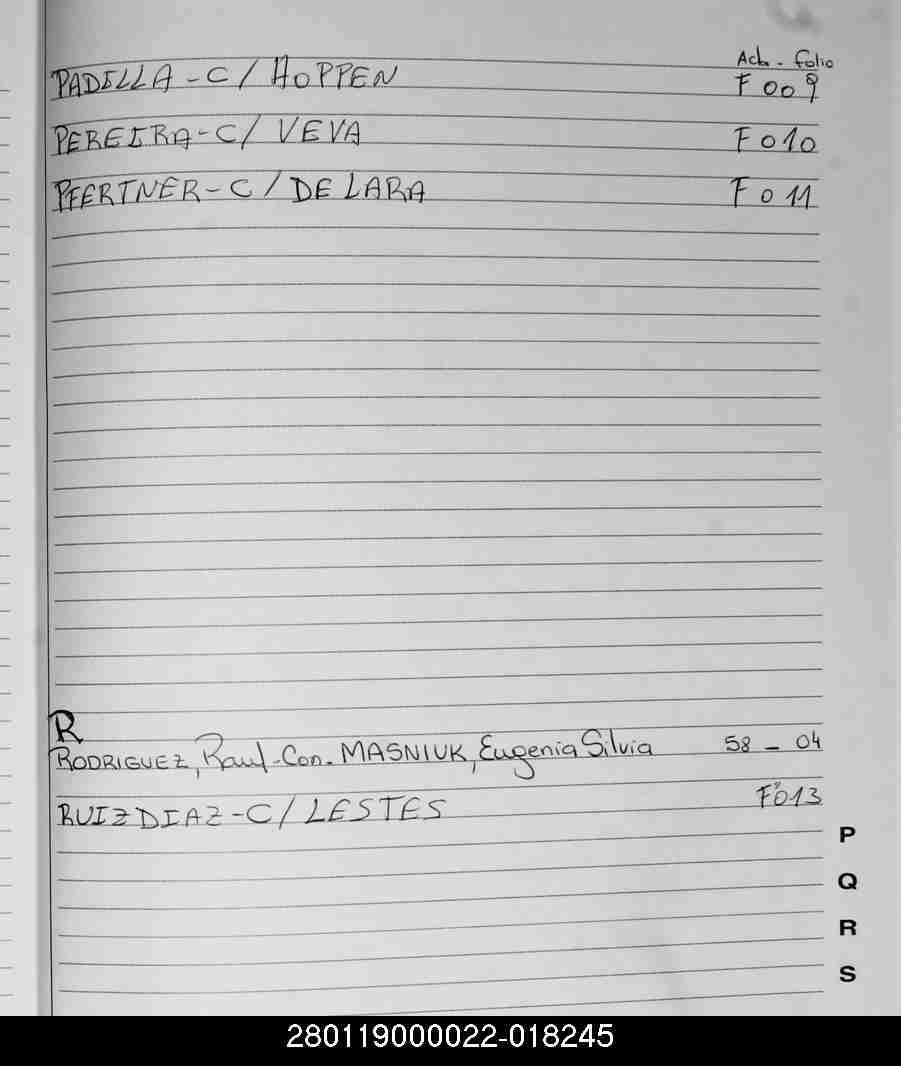 Acta - folio
PADILLA - C / HOPPEN F 009
PEREIRA - C / VEVA F 010
PFERTNER - C / DE LARA F 011
R
RODRIGUEZ, Raul - Con. MASNIUK, Eugenia Silvia 58 - 04
RUIZ DIAZ - C / LESTES Fº013
P
Q
R
S
280119000022-018245